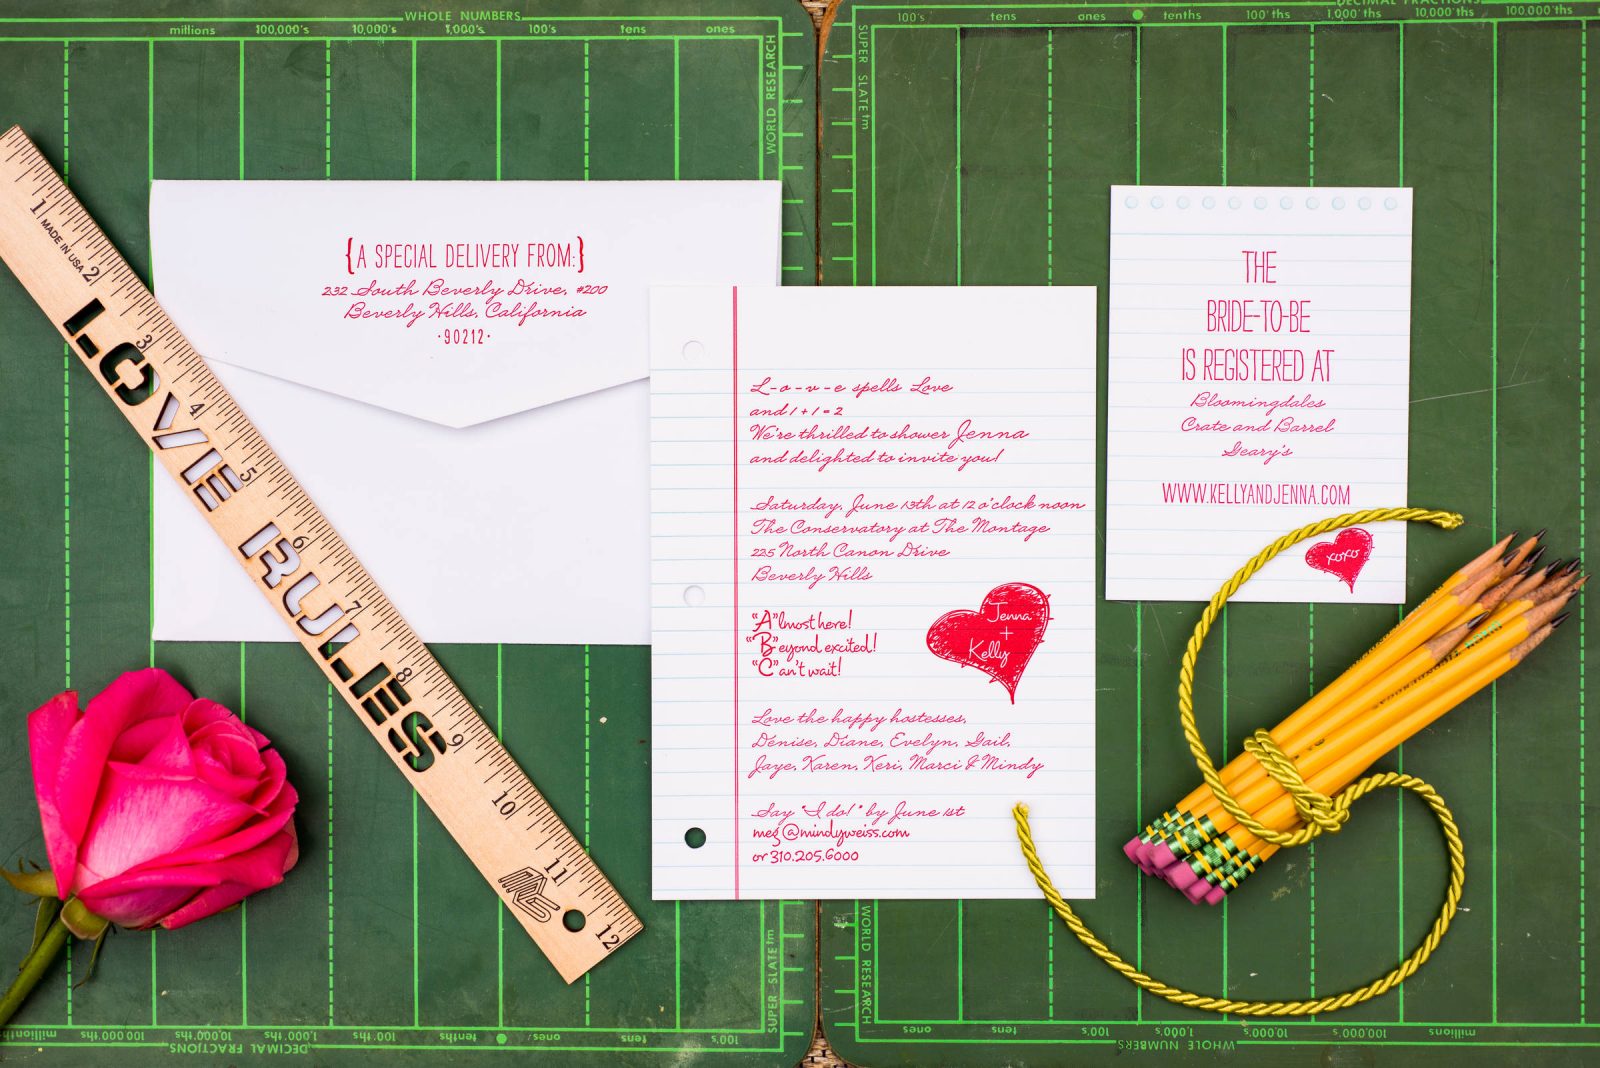 WHOLE NUMBERS
millions 100,000's 10,000's 1,000's 100's tens ones
WORLD RESEARCH
SUPER SLATE tm
DECIMAL FRACTIONS
100's tens ones tenths 100'ths 1,000'ths 10,000'ths 100,000'ths
SUPER SLATE tm
WORLD RESEARCH
{A SPECIAL DELIVERY FROM:}
232 South Beverly Drive, #200
Beverly Hills, California
·90212·
1 2 3 4 5 6 7 8 9 10 11 12
MADE IN USA
LOVE RULES
L-o-v-e spells Love
and 1 + 1 = 2
We're thrilled to shower Jenna
and delighted to invite you!
Saturday, June 13th at 12 o'clock noon
The Conservatory at The Montage
225 North Canon Drive
Beverly Hills
"A"lmost here!
"B"eyond excited!
"C"an't wait!
Jenna
+
Kelly
Love the happy hostesses,
Denise, Diane, Evelyn, Gail,
Jaye, Karen, Keri, Marci & Mindy
Say "I do!" by June 1st
meg@mindyweiss.com
or 310.205.6000
THE
BRIDE-TO-BE
IS REGISTERED AT
Bloomingdales
Crate and Barrel
Geary's
WWW.KELLYANDJENNA.COM
xoxo
millionths 100,000ths 10,000'ths 1,000'ths 100'ths tenths ones tens 100's
DECIMAL FRACTIONS
ones tens 100's 1,000's 10,000's 100,000's millions
WHOLE NUMBERS